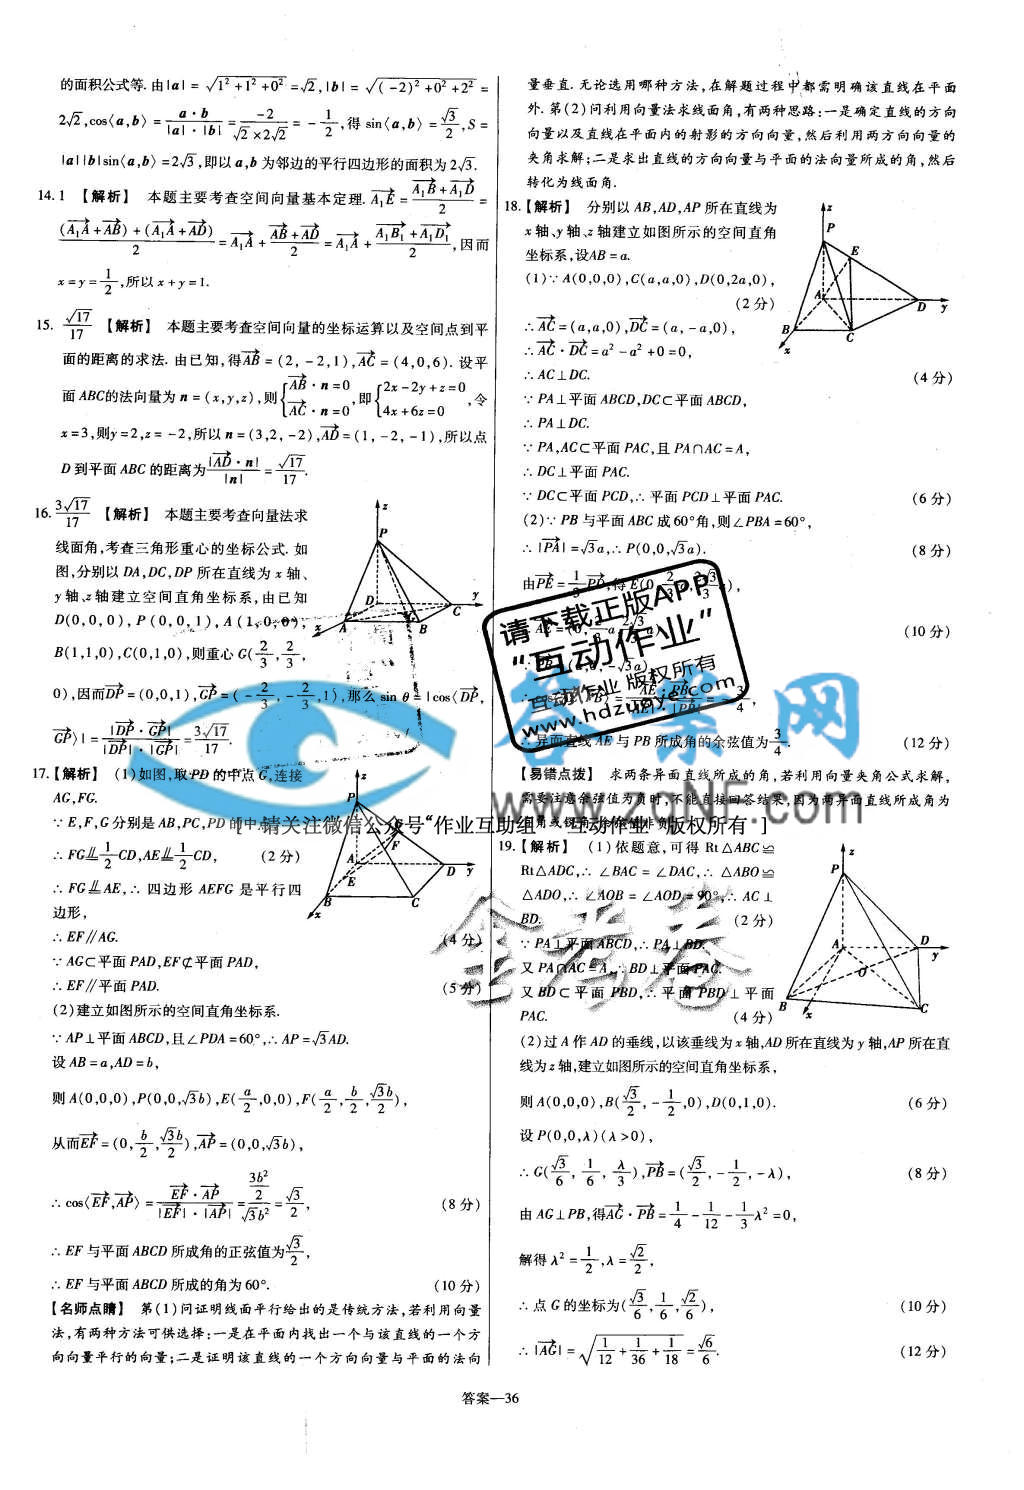 的面积公式等. 由|a| = √(1²+1²+0²) = √2, |b| = √((-2)²+0²+2²) =
2√2, cos⟨a,b⟩ = a·b/(|a|·|b|) = -2/(√2×2√2) = -1/2, 得 sin⟨a,b⟩ = √3/2, S =
|a||b|sin⟨a,b⟩ = 2√3, 即以 a,b 为邻边的平行四边形的面积为 2√3.
14. 1 【解析】 本题主要考查空间向量基本定理. A₁E→ = (A₁B→+A₁D→)/2 =
((A₁A→+AB→)+(A₁A→+AD→))/2 = A₁A→ + (AB→+AD→)/2 = A₁A→ + (A₁B₁→+A₁D₁→)/2, 因而
x = y = 1/2, 所以 x + y = 1.
15. √17/17 【解析】 本题主要考查空间向量的坐标运算以及空间点到平
面的距离的求法. 由已知, 得AB→ = (2, -2,1), AC→ = (4,0,6). 设平
面 ABC的法向量为 n = (x,y,z), 则{AB→·n=0 AC→·n=0, 即{2x-2y+z=0 4x+6z=0, 令
x=3, 则y=2, z=-2, 所以 n=(3,2,-2), AD→=(1,-2,-1), 所以点
D 到平面 ABC 的距离为|AD→·n|/|n| = √17/17.
16. 3√17/17 【解析】 本题主要考查向量法求
线面角, 考查三角形重心的坐标公式. 如
图, 分别以 DA,DC,DP 所在直线为 x 轴、
y轴、z轴建立空间直角坐标系, 由已知
D(0,0,0), P(0,0,1), A(1,0,0),
B(1,1,0), C(0,1,0), 则重心 G(2/3, 2/3,
0), 因而DP→=(0,0,1), GP→=(-2/3, -2/3, 1), 那么 sin θ = |cos⟨DP→,
GP→⟩| = |DP→·GP→|/(|DP→|·|GP→|) = 3√17/17.
z P D A B C G x y
17.【解析】 (1)如图, 取 PD 的中点 G, 连接
AG,FG.
∵ E,F,G分别是 AB,PC,PD的中
∴ FG⫽1/2CD, AE⫽1/2CD, (2 分)
∴ FG⫽AE, ∴ 四边形 AEFG 是平行四
边形,
∴ EF∥AG. (4 分)
∵ AG⊂平面 PAD, EF⊄平面 PAD,
∴ EF∥平面 PAD. (5 分)
z P G F A E B C D x y
(2)建立如图所示的空间直角坐标系.
∵ AP⊥平面 ABCD, 且∠PDA=60°, ∴ AP=√3AD.
设 AB=a, AD=b,
则 A(0,0,0), P(0,0,√3b), E(a/2,0,0), F(a/2, b/2, √3b/2),
从而EF→=(0, b/2, √3b/2), AP→=(0,0,√3b),
∴ cos⟨EF→,AP→⟩ = EF→·AP→/(|EF→|·|AP→|) = (3b²/2)/(√3b²) = √3/2, (8 分)
∴ EF 与平面 ABCD 所成角的正弦值为√3/2,
∴ EF 与平面 ABCD 所成的角为 60°. (10 分)
【名师点睛】 第(1)问证明线面平行给出的是传统方法, 若利用向量
法, 有两种方法可供选择: 一是在平面内找出一个与该直线的一个方
向向量平行的向量; 二是证明该直线的一个方向向量与平面的法向
量垂直. 无论选用哪种方法, 在解题过程中都需明确该直线在平面
外. 第(2)问利用向量法求线面角, 有两种思路: 一是确定直线的方向
向量以及直线在平面内的射影的方向向量, 然后利用两方向向量的
夹角求解; 二是求出直线的方向向量与平面的法向量所成的角, 然后
转化为线面角.
18.【解析】 分别以 AB,AD,AP 所在直线为
x 轴、y 轴、z 轴建立如图所示的空间直角
坐标系, 设AB=a.
(1)∵ A(0,0,0), C(a,a,0), D(0,2a,0),
(2 分)
∴ AC→=(a,a,0), DC→=(a,-a,0),
∴ AC→·DC→=a²-a²+0=0,
∴ AC⊥DC. (4 分)
∵ PA⊥平面 ABCD, DC⊂平面 ABCD,
∴ PA⊥DC.
∵ PA,AC⊂平面 PAC, 且 PA∩AC=A,
∴ DC⊥平面 PAC.
∵ DC⊂平面 PCD, ∴ 平面 PCD⊥平面 PAC. (6 分)
z P E A B C D x y
(2)∵ PB 与平面 ABC 成60°角, 则∠PBA=60°,
∴ |PA→|=√3a, ∴ P(0,0,√3a). (8 分)
由PE→=1/3PD→, 得 E(0,
(10 分)
3/4,
∴ 异面直线 AE 与 PB 所成角的余弦值为3/4. (12 分)
【易错点拨】 求两条异面直线所成的角, 若利用向量夹角公式求解,
需要注意余弦值为负时, 不能直接回答结果, 因为两异面直线所成角为
19.【解析】 (1)依题意, 可得 Rt△ABC≌
Rt△ADC, ∴ ∠BAC=∠DAC, ∴ △ABO≌
△ADO, ∴ ∠AOB=∠AOD=90°, ∴ AC⊥
BD. (2 分)
∵ PA⊥平面 ABCD, ∴ PA⊥BD.
又 PA∩AC=A, ∴ BD⊥平面 PAC.
又 BD⊂平面 PBD, ∴ 平面 PBD⊥平面
PAC. (4 分)
z P A D O B C x y
(2)过 A 作 AD 的垂线, 以该垂线为 x 轴, AD 所在直线为 y 轴, AP 所在直
线为 z 轴, 建立如图所示的空间直角坐标系,
则 A(0,0,0), B(√3/2, -1/2, 0), D(0,1,0). (6 分)
设 P(0,0,λ)(λ>0),
∴ G(√3/6, 1/6, λ/3), PB→=(√3/2, -1/2, -λ), (8 分)
由 AG⊥PB, 得AG→·PB→=1/4-1/12-1/3λ²=0,
解得 λ²=1/2, λ=√2/2.
∴ 点 G 的坐标为(√3/6, 1/6, √2/6), (10 分)
∴ |AG→|=√(1/12+1/36+1/18)=√6/6. (12 分)
答案—36
请下载正版APP
“互动作业”
互动作业 版权所有
www.hdzuoye.com
答案网
www.zqNF.com
[ 请关注微信公众号“作业互助组” 互动作业 版权所有 ]
金考卷